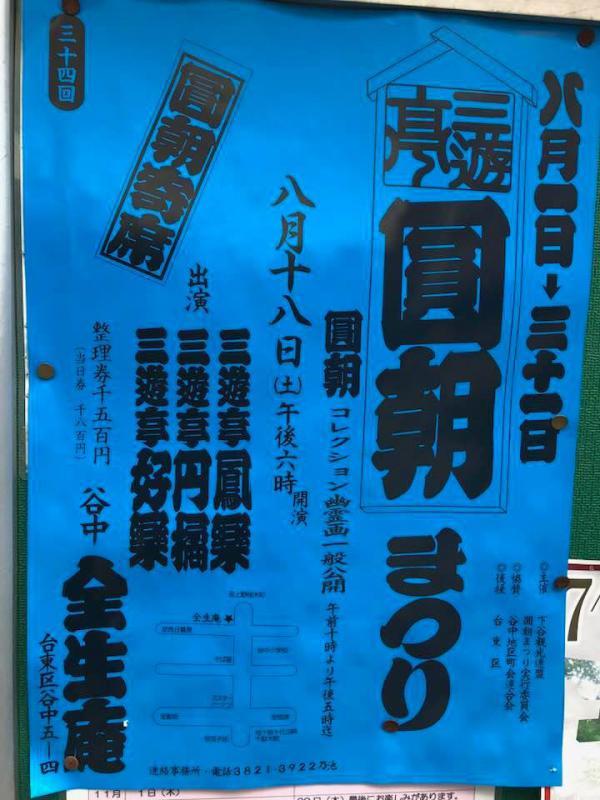 八月一日→三十一日
三遊亭
圓朝
まつり
◎主催
下谷観光連盟
圓朝まつり実行委員会
◎協賛
谷中地区町会連合会
◎後援
台東区
圓朝コレクション幽霊画一般公開
午前十時より午後五時迄
八月十八日(土)午後六時開演
三十四回
圓朝寄席
出演
三遊亭鳳樂
三遊亭円福
三遊亭好樂
整理券千五百円
(当日券 千八百円)
谷中
全生庵
台東区谷中五ー四
全生庵
連絡事務所・電話3821-3922乃池
11月 1日(木)